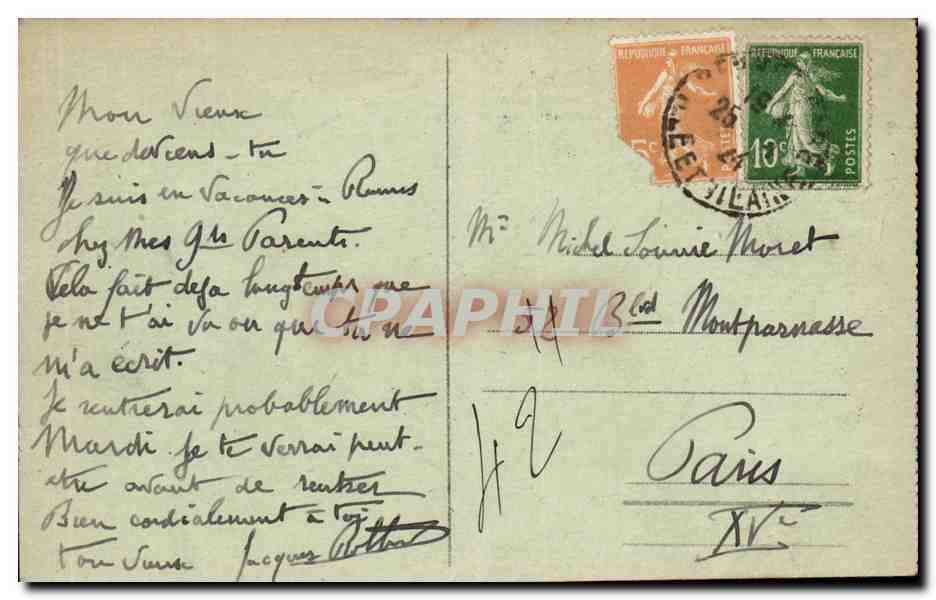 Mon vieux
que deviens-tu
Je suis en vacances à
chez mes Gds Parents.
Cela fait deja longtemps que
je ne t'ai vu ou que tu ne
m'a écrit.
Je rentrerai probablement
Mardi. Je te verrai peut-
etre avant de rentrer
Bien cordialement à toi
ton vieux Jacques
REPUBLIQUE FRANÇAISE
5c
POSTES
REPUBLIQUE FRANÇAISE
10c
POSTES
25
ILLE ET VILAINE
Mr Michel Moret
Bld Montparnasse
42
Paris
XVe
CPAPHIL